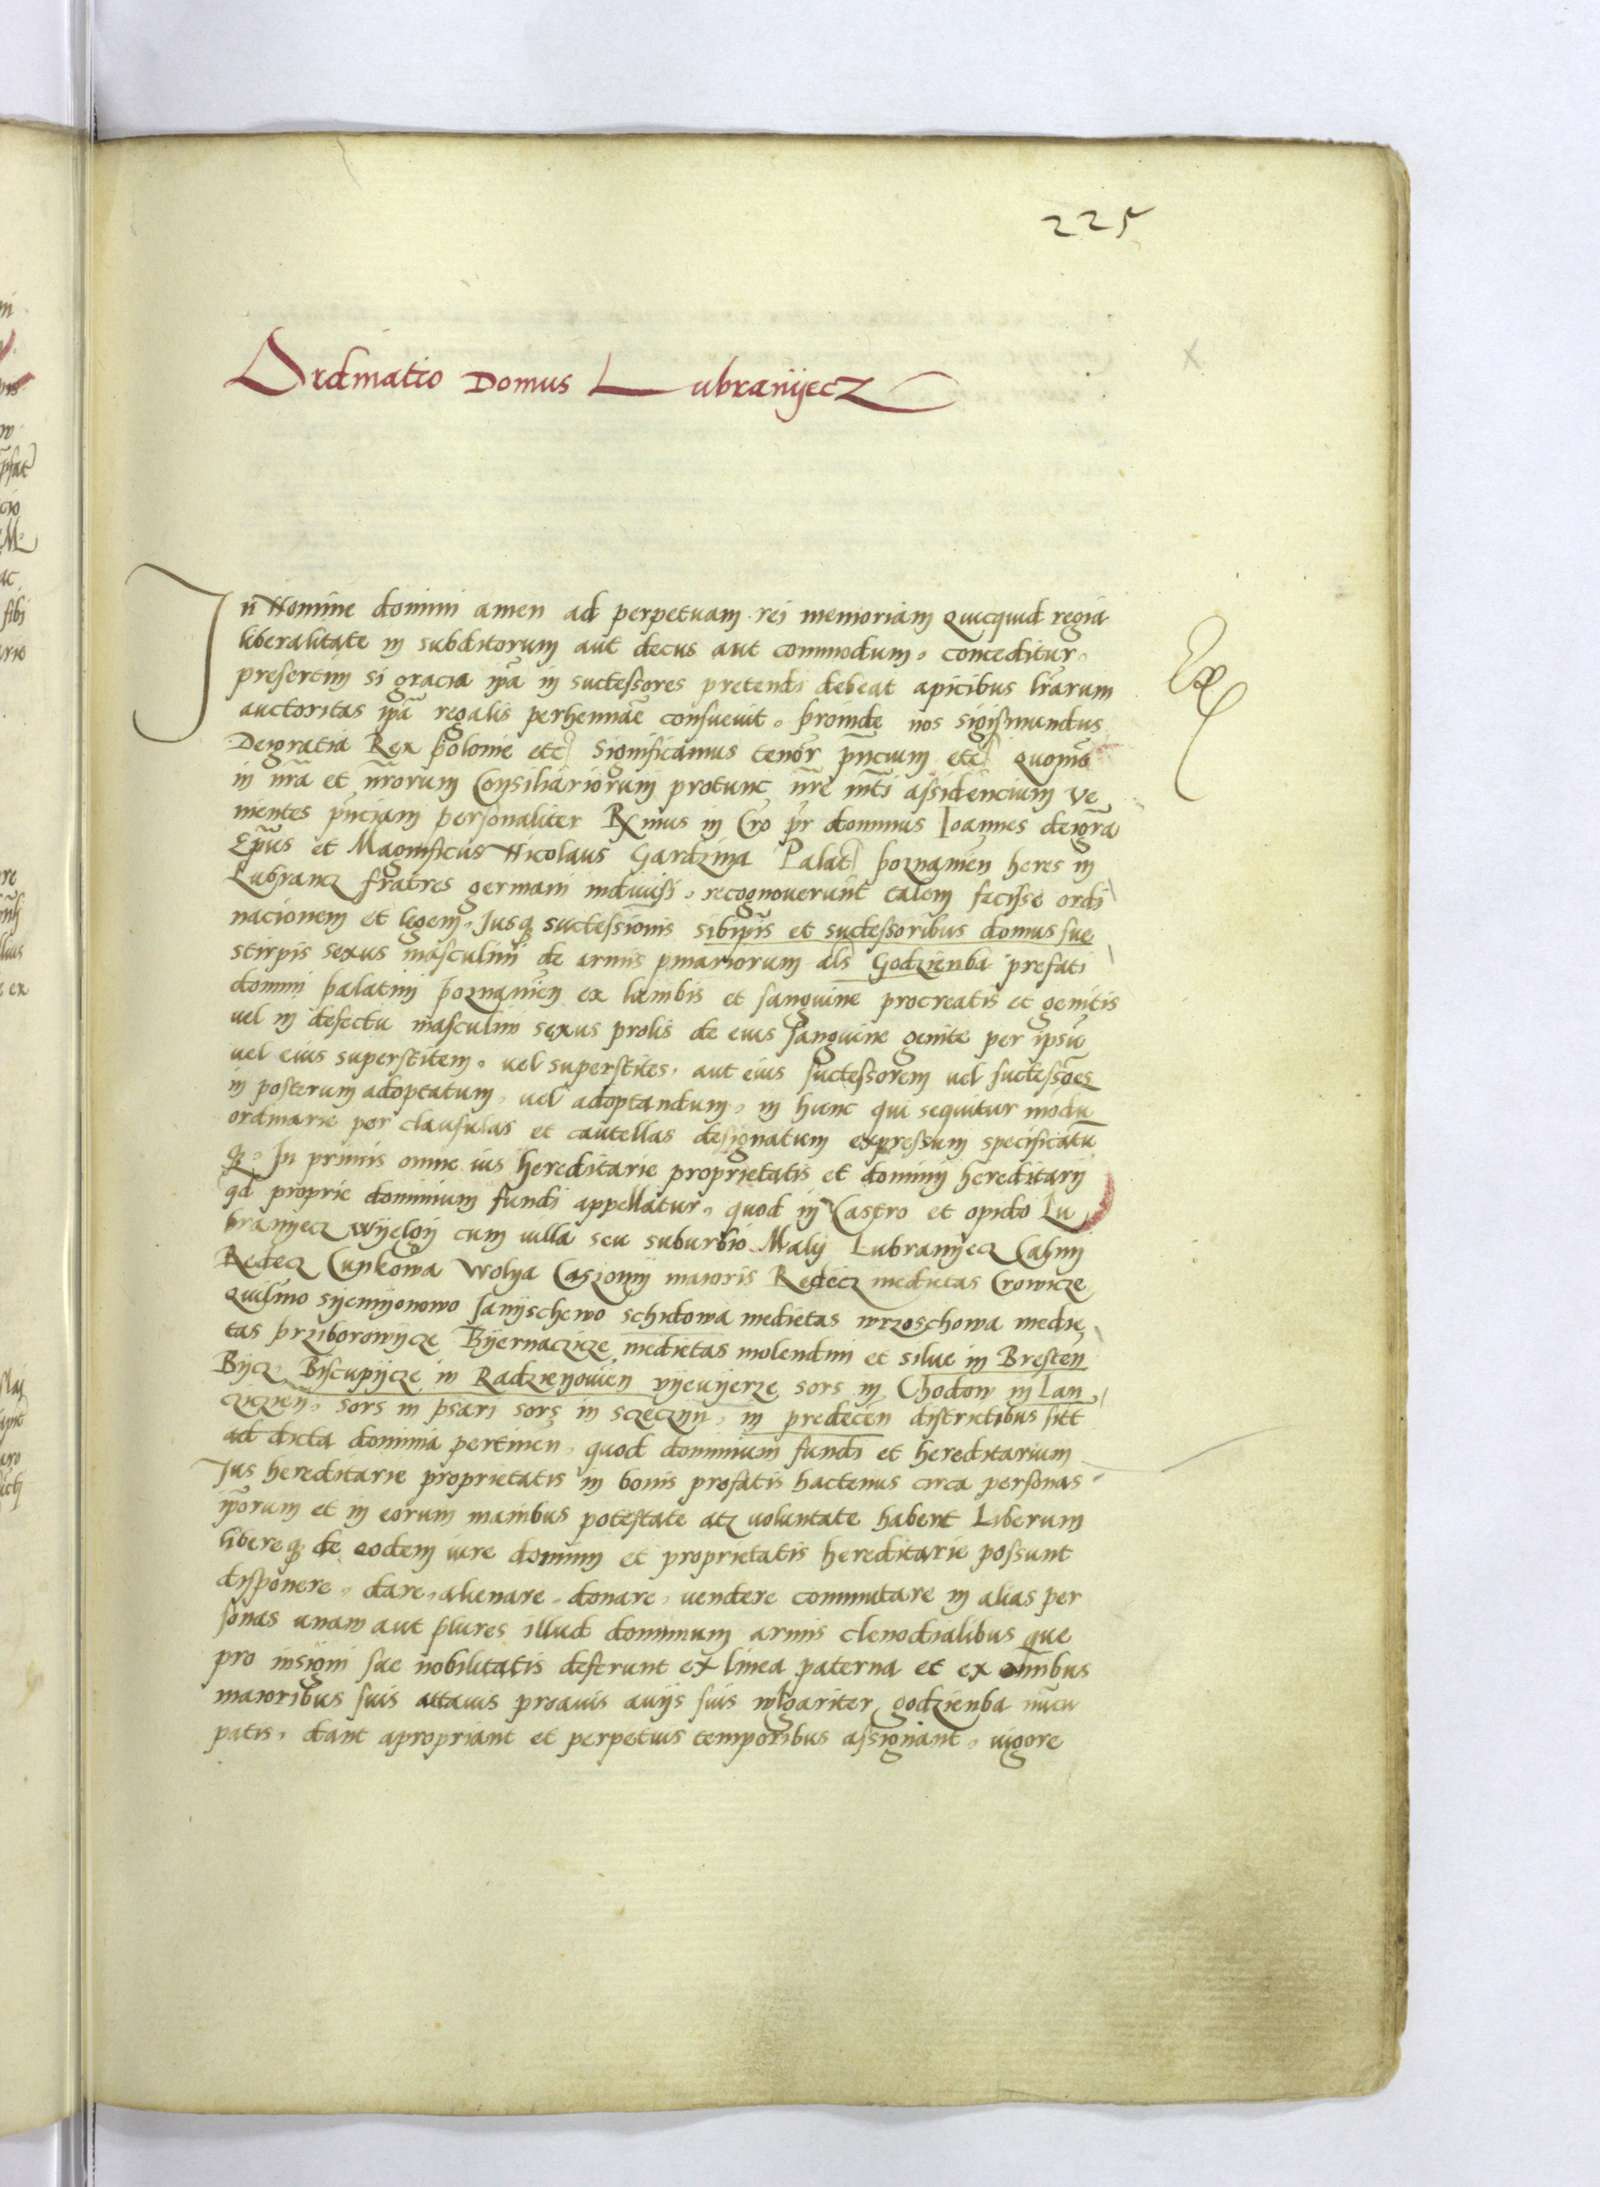 225
Ordinatio Domus Lubranÿecz
In Nomine domini amen ad perpetuam rei memoriam Quicquid regia
liberalitate in subditorum aut decus aut commodum, conceditur,
presertim si gracia ipa in successores pretendi debeat apicibus lrarum
auctoritas ipa regalis perhennare consuevit. proinde nos Sigismundus
Dei gratia Rex polonie etc Significamus tenor pntium etc Quomo
in nra et nrorum Consiliariorum protunc nre mti assidencium ve
nientes pnciam personaliter Rx mus in Cro pr dominus Ioannes dei gra
Epus et Magnificus Nicolaus Gardzina Palat poznanien heres in
Lubrancz fratres germani indivisi, recognoverunt talem fecisse ordi
nacionem et legem, Jusq successionis sibipis et successoribus domus sue
stirpis sexus masculini de armis pmariorum als Godzienba prefati
domini palatini poznanien ex lumbis et sanguine procreatis et genitis
vel in defectu masculini sexus prolis de eius sanguine genite per ipsu
vel eius superstitem, vel superstites, aut eius successorem vel successoes
in posterum adoptatum, vel adoptandum, in hunc qui sequitur modu
ordinarie per clausulas et cautellas designatum expressum specificatu
q. In primis omne ius hereditarie proprietatis et dominij hereditarij
qd proprie dominium fundi appellatur, quod in Castro et opido Lu
branÿecz wÿelgÿ cum villa seu suburbio Malÿ Lubranÿecz
Redecz Cupkowa Wolya maioris Redecz medietas
sÿemÿonowo sanÿschewo schidowa medietas wrzoschowa medie
tas przÿborowÿcze Bÿernaczicze medietas molendini et silve in Bresten
Bÿcz Biscupÿcze in Radzieÿovien sors in Chodow in Lan
czicien, sors in psari sors in in predecen districtibus sitt
ad dicta dominia pertinen, quod dominium fundi et hereditarium
Jus hereditarie proprietatis in bonis prefatis hactenus circa personas
iporum et in eorum manibus potestate atz voluntate habent Liberum
libereq de eodem iure dominij et proprietatis hereditarie possunt
disponere, dare, alienare, donare, vendere commutare in alias per
sonas unam aut plures illud dominium armis clenodialibus que
pro insigni sue nobilitatis deferunt ex linea paterna et ex omnibus
maioribus suis attavis proavis avijs suis wlgariter godzienba nuncu
patis, dant apropriant et perpetuis temporibus assignant, vigore